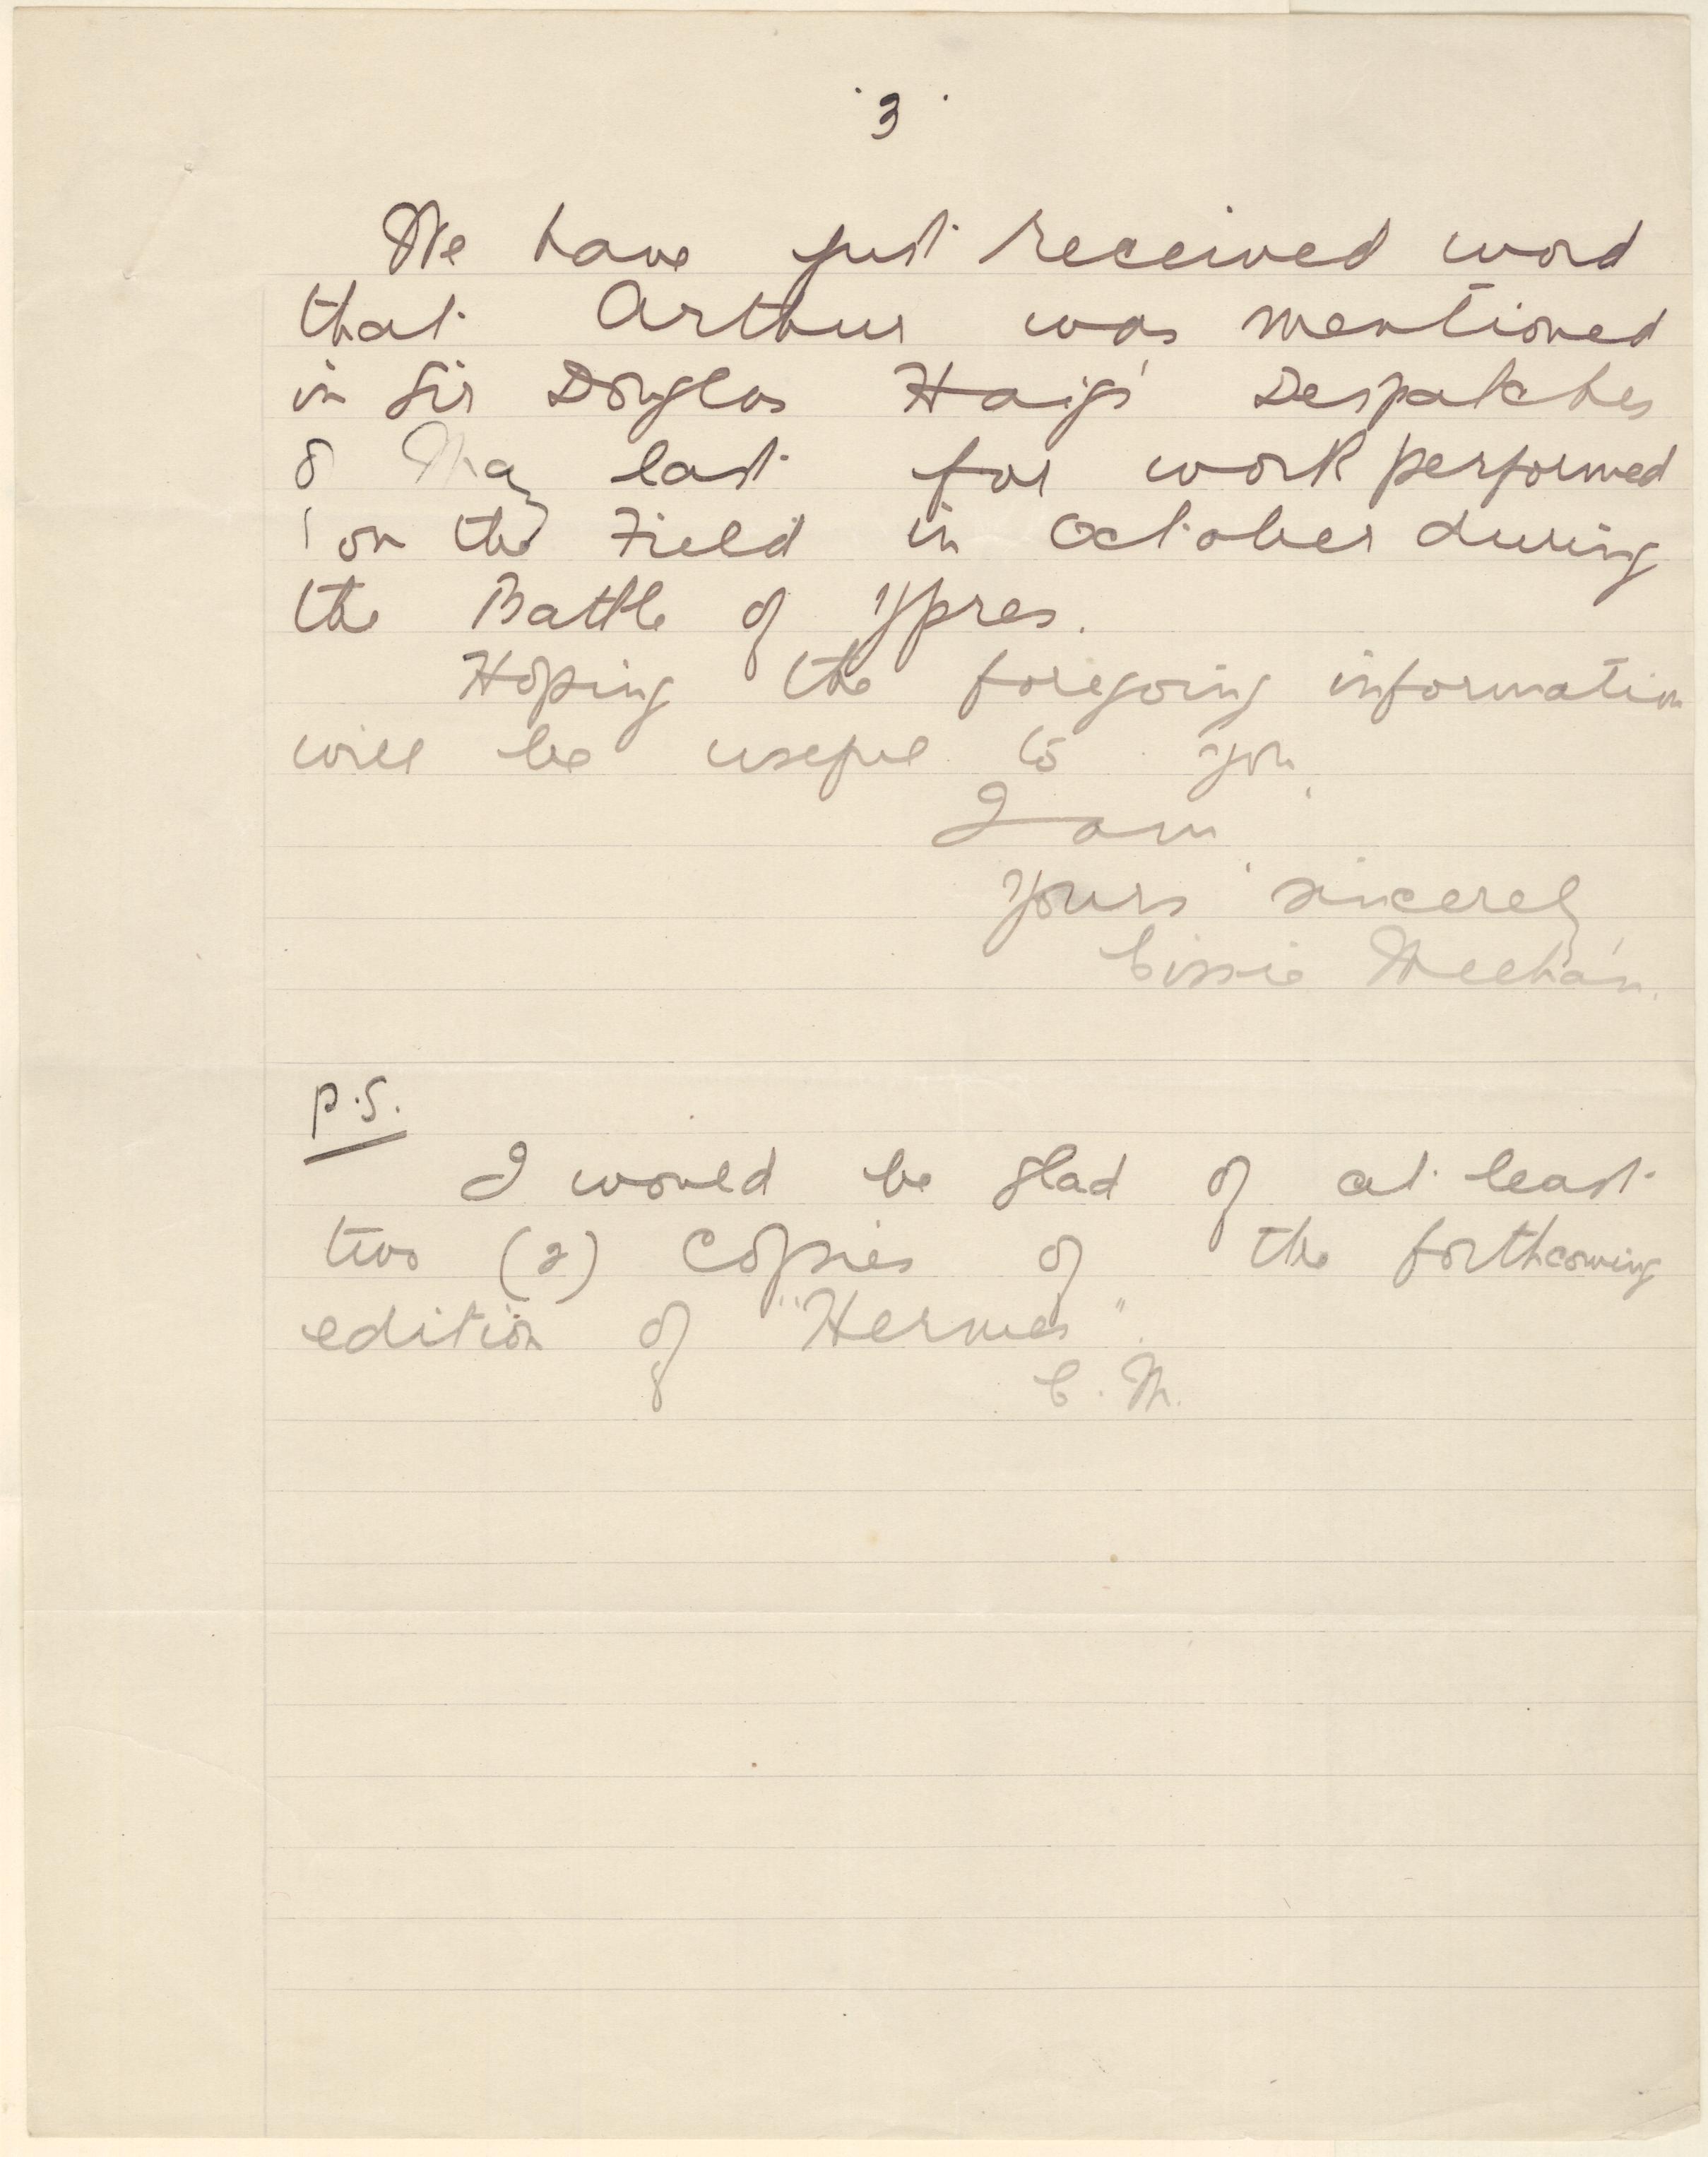 . 3 .
We have just received word
that Arthur was mentioned
in Sir Douglas Haig's Despatches
of May last for work performed
on the Field in October during
the Battle of Ypres.
Hoping the foregoing information
will be useful to you,
I am
Yours sincerely,
Cissie Meehan.
P.S.
I would be glad of at least
two (2) copies of the forthcoming
edition of "Hermes".
C. M.